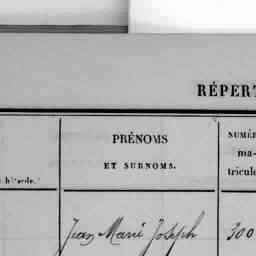 RÉPERT
PRÉNOMS
ET SURNOMS.
NUMÉR
ma-
tricule
Jean Marie Joseph
300